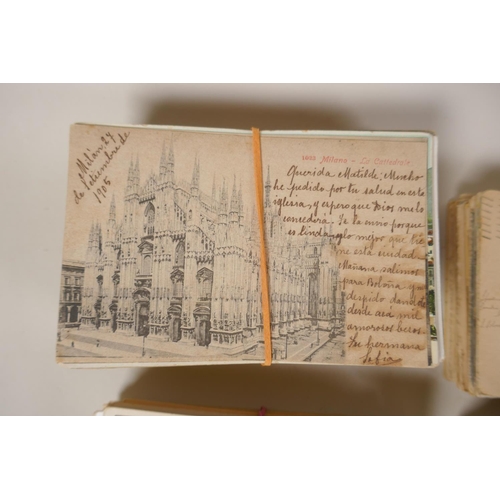 Milán 27
de Setiembre de
1905
1095 Milano - La Cattedrale
Querida Matilde: Mucho
he pedido por tu salud en esta
iglesia, y espero que Dios me lo
concederá. Te la envio porque
es linda, y lo mejor que tie
ne esta ciudad.
Mañana salimos
para Boloña y me
despido dandote
desde acá mil
amorosos besos.
Tu hermana
Sofia